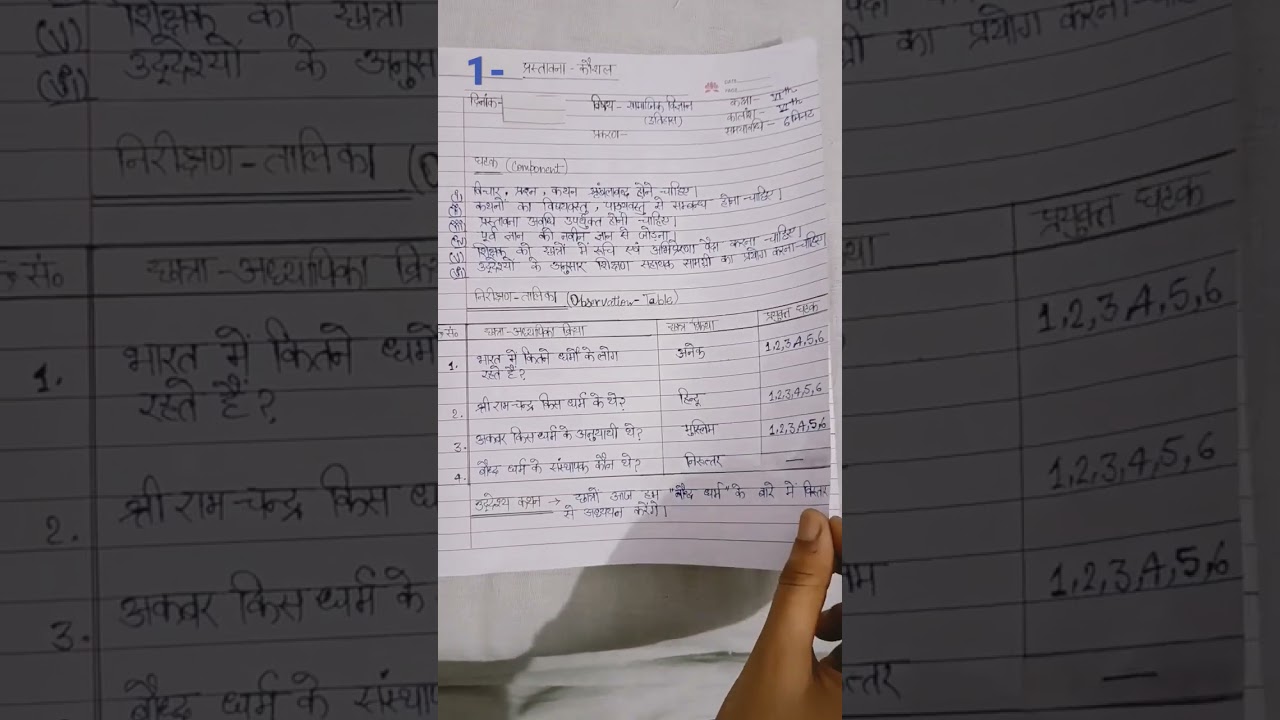 1- प्रस्तावना - कौशल
DATE
PAGE
दिनांक-
विषय - सामाजिक विज्ञान
(इतिहास)
प्रकरण-
कक्षा- VIth
कालांश- VIth
समयावधि- 6 मिनट
घटक (Component)
(i) विचार, प्रश्न, कथन श्रृंखलाबद्ध होने चाहिए।
(ii) कथनों का विषयवस्तु, पाठ्यवस्तु से सम्बन्ध होना चाहिए।
(iii) प्रस्तावना अवधि उपयुक्त होनी चाहिए।
(iv) पूर्व ज्ञान को नवीन ज्ञान से जोड़ना।
(v) शिक्षक को छात्रों में रूचि एवं अभिप्रेरणा पैदा करना चाहिए।
(vi) उद्देश्यों के अनुसार शिक्षण सहायक सामग्री का प्रयोग करना चाहिए
निरीक्षण-तालिका (Observation-Table)
क्र०सं० छात्रा-अध्यापिका क्रिया छात्र क्रिया प्रयुक्त घटक
1. भारत में कितने धर्मों के लोग अनेक 1,2,3,4,5,6
रहते हैं?
2. श्री राम-चन्द्र किस धर्म के थे? हिन्दू 1,2,3,4,5,6
3. अकबर किस धर्म के अनुयायी थे? मुस्लिम 1,2,3,4,5,6
4. बौद्ध धर्म के संस्थापक कौन थे? निरुत्तर —
उद्देश्य कथन → छात्रों आज हम "बौद्ध धर्म" के बारे में विस्तार
से अध्ययन करेंगे।